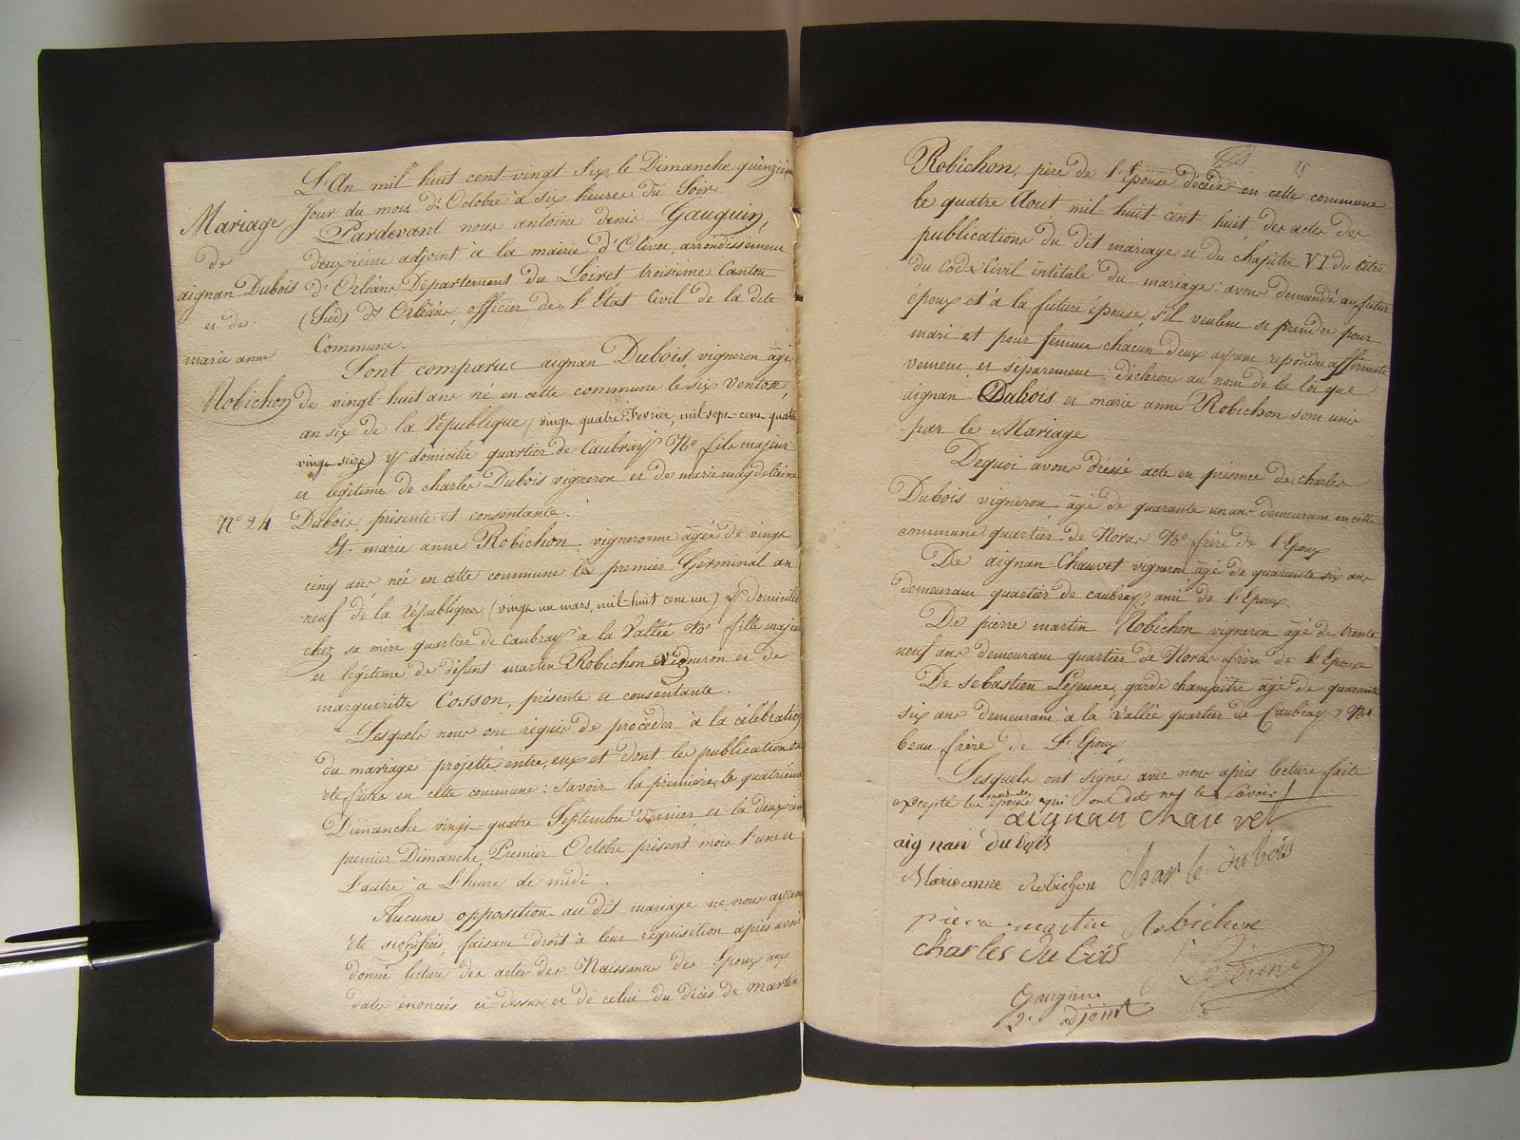 Mariage
de
aignan Dubois
et de
marie anne
Robichon
N° 24
L'An mil huit cent vingt six, le Dimanche quinzième
Jour du mois d'Octobre à six heures du Soir
Pardevant nous antoine denis Gauguin,
deuxieme adjoint à la mairie d'Olivet, arrondissement
d'Orléans Département du Loiret troisième Canton
(Sud) d'Orléans, officier de l'Etat Civil de la dite
Commune.
Sont comparus aignan Dubois, vigneron âgé
de vingt huit ans né en cette commune le six Ventose,
an six de la République (vingt quatre Fevrier, mil sept cent quatre
vingt dix) y domicilié quartier de Caubray N° fils majeur
et légitime de charles Dubois vigneron et de marie magdelaine
Dubois, présente et consentante.
Et marie anne Robichon vigneronne âgée de vingt
cinq ans née en cette commune le premier Germinal an
neuf de la République (vingt un mars, mil huit cent un) y domiciliée
chez sa mère quartier de Caubray à la Vallée N° fille majeure
et légitime de défunt martin Robichon vigneron et de
marguerite Cosson, présente et consentante.
Lesquels nous ont requis de procéder à la célébration
du mariage projetté entre eux et dont les publications ont
été faites en cette commune : savoir la première, le quatrième
Dimanche vingt quatre Septembre dernier et la deuxième
premier Dimanche, Premier Octobre présent mois l'une et
l'autre à l'heure de midi.
Aucune opposition au dit mariage ne nous ayant
été signifiée, faisant droit à leur réquisition après avoir
donné lecture des actes de Naissance des Epoux aux
dates énoncées ci dessus et de celui du décès de Martin
Robichon, père de l'Epouse décédé en cette commune
le quatre Aout mil huit cent huit, des actes des
publications du dit mariage et du chapitre VI du titre
du Code Civil intitulé du mariage : avons demandé au futur
époux et à la future épouse s'il veulent se prendre pour
mari et pour femme chacun d'eux ayant répondu affirmati
vement et séparément déclarons au nom de la loi que
aignan Dubois et marie anne Robichon sont unis
par le Mariage
Dequoi avons dressé acte en présence de charles
Dubois vigneron âgé de quarante un ans demeurant en cette
commune quartier de Noras N° frère de l'Epoux
De aignan Chauvet vigneron âgé de quarante six ans
demeurant quartier de caubray ami de l'Epoux
De pierre martin Robichon vigneron âgé de trente
neuf ans demeurant quartier de Noras frère de l'Epouse
De sebastien Lejeune, garde champêtre âgé de quarante
six ans demeurant à la Vallée quartier de Caubray N°
beau frère de l'Epoux
Lesquels ont signé avec nous après lecture faite
excepté les qui ont dit ne le savoir
aignan chauvet
aignan dubois
Marieanne Robichon Charle dubois
piere martin Robichon
charles dubois
Gauguin
2e adjoint